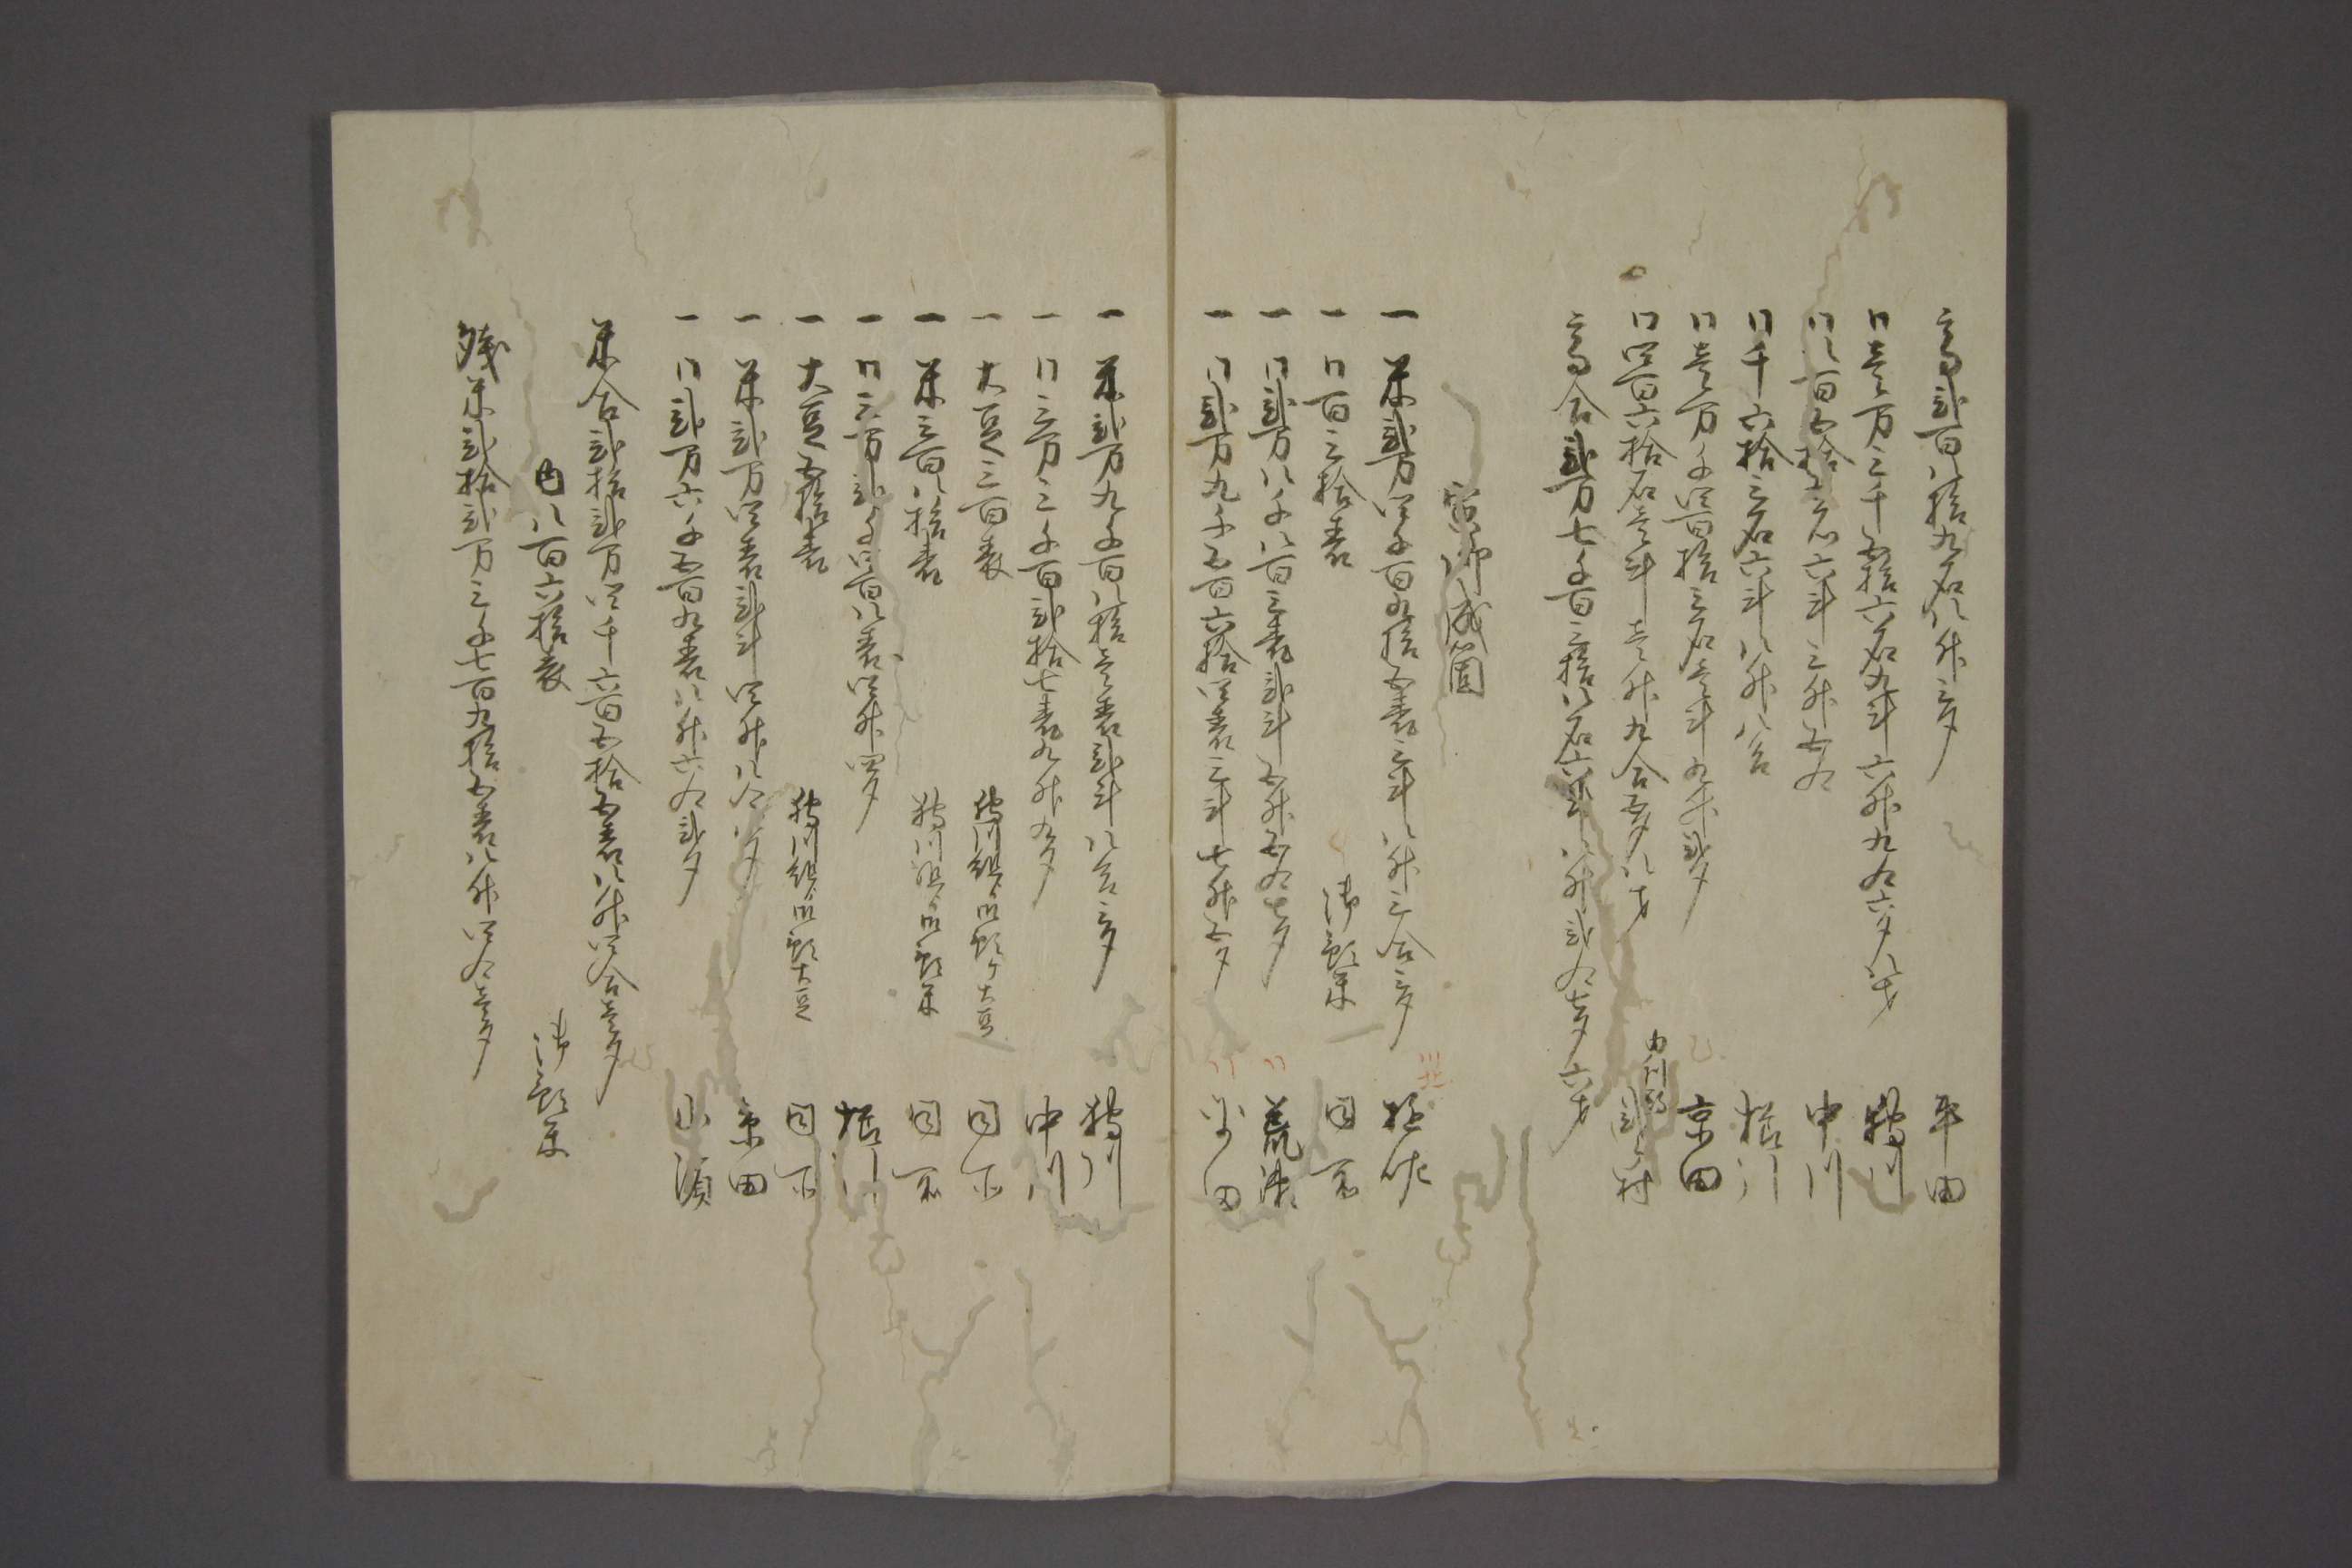 高弐百八拾九石八升三夕 平田
同壱万三千五拾六石九斗六升九合六夕八才 狩川
同八百五拾三石六斗三升五合 中川
同千六拾三石六斗八升八合 櫛引
同壱万千四百拾三石壱斗九升弐夕 京田
同四百六拾石壱斗壱升九合五夕八才 由利郡 関村
高合弐万七千百三拾八石六斗八升弐合七夕六才
定御成箇
一 米弐万四千百九拾五表三斗八升三合三夕
一 同百三拾表 御預米 同所
一 同弐万八千八百三表弐斗五升五合七夕 荒瀬
一 同弐万九千五百六拾四表三斗七升五夕 平田
一 米弐万九千百八拾壱表弐斗八合三夕 狩川
一 同三万三千百弐拾七表九升九夕 中川
一 大豆三百表 狩川組御預ケ大豆 同所
一 米三百八拾表 狩川組御預米 同所
一 同三万弐千四百八表四升四夕 櫛引
一 大豆五拾表 狩川組御預大豆 同所
一 米弐万四表弐斗四升八合八夕 京田
一 同弐万六千五百九表八升六合弐夕 山浜
米合弐拾弐万四千六百五拾五表八升四合壱夕
内八百六拾表 御預米
残米弐拾弐万三千七百九拾五表八升四合壱夕